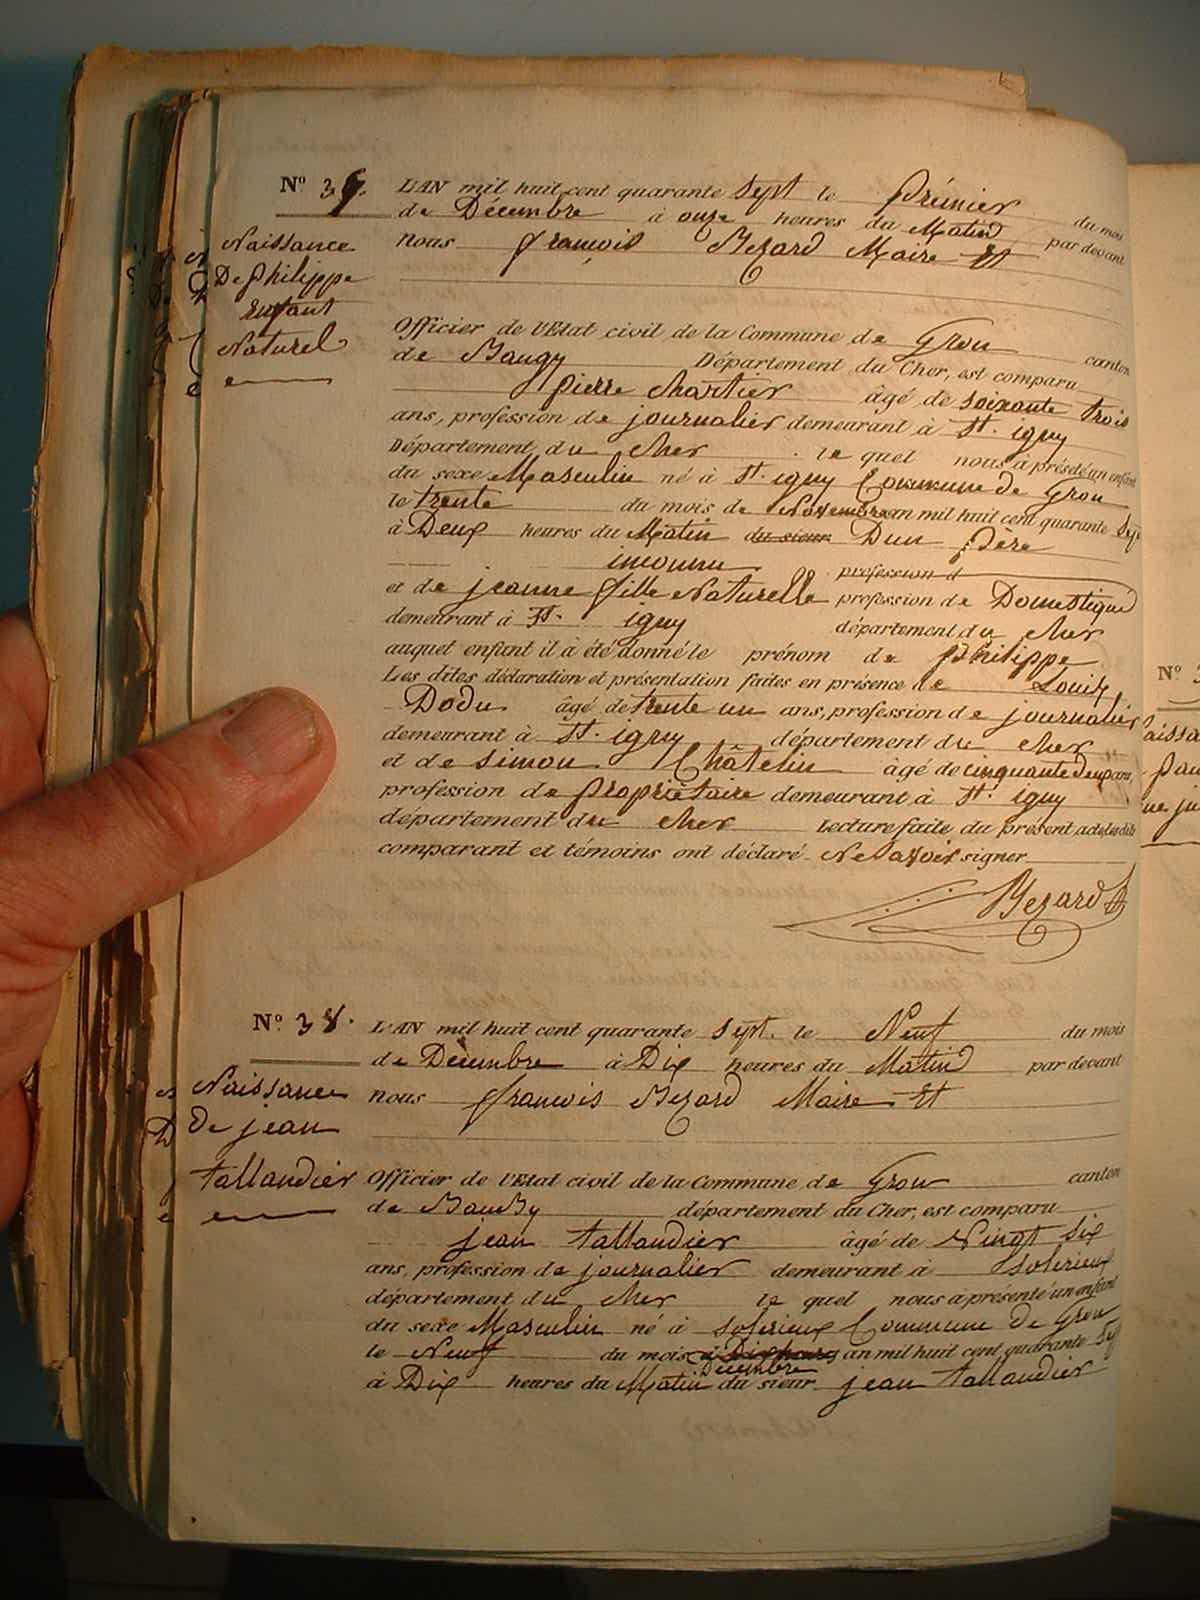 L'AN mil huit cent quarante sept le Prémier du mois
de Décembre à onze heures du Matin par devant
nous françois Bezard Maire Et
Naissance
De philippe
Enfant
Naturel
Officier de l'Etat civil de la Commune de Gron canton
de Baugy Département du Cher, est comparu
pierre chartier âgé de soixante trois
ans, profession de journalier demeurant à St. igny
Département du cher le quel nous à présenté un enfant
du sexe Masculin né à St. igny Commune de Gron
le trente du mois de Novembre an mil huit cent quarante Sept
à Deux heures du Matin du sieur Dun père
inconnu profession d
et de jeanne fille Naturelle profession de Domestique
demeurant à St. igny département du cher
auquel enfant il à été donné le prénom de philippe
Les dites déclaration et présentation faites en présence de Louis
Dodu âgé de trente un ans, profession de journalier
demeurant à St. igny département du cher
et de simon Châtelin âgé de cinquante deux ans,
profession de propriétaire demeurant à St. igny
département du cher Lecture faite du présent acte les dits
comparant et témoins ont déclaré Ne savoir signer
Bezard
N° 38. L'AN mil huit cent quarante sept. le Neuf du mois
de Décembre à Dix heures du Matin par devant
nous françois Bezard Maire Et
Naissance
De jean
tallandier
Officier de l'Etat civil de la Commune de Gron canton
de Baugy département du Cher, est comparu
jean tallandier âgé de Vingt six
ans, profession de journalier demeurant à solerieux
département du cher le quel nous à présenté un enfant
du sexe Masculin né à solerieux Commune de Gron
le Neuf du mois de Décembre an mil huit cent quarante Sept
à Dix heures du Matin du sieur jean tallandier
N°